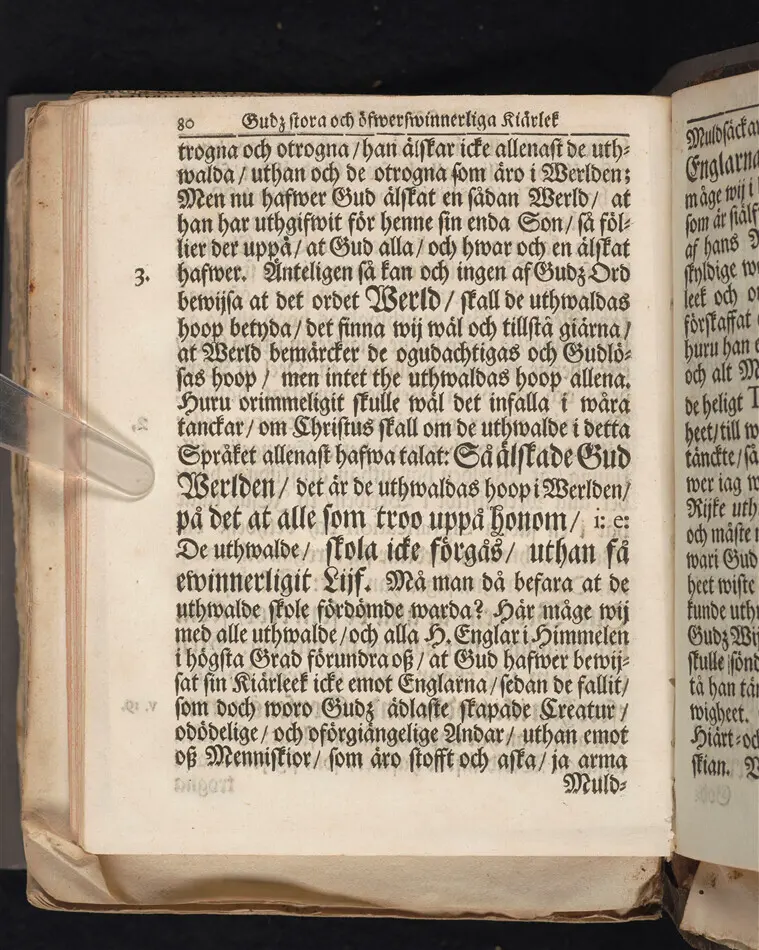 80 Gudz stora och öfwerswinnerliga Kiärlek
trogna och otrogna / han älskar icke allenast de uth⸗
walda / uthan och de otrogna som äro i Werlden;
Men nu hafwer Gud älskat en sådan Werld / at
han har uthgifwit för henne sin enda Son / så föl⸗
lier der uppå / at Gud alla / och hwar och en älskat
3. hafwer. Änteligen så kan och ingen af Gudz Ord
bewijsa at det ordet Werld / skall de uthwaldas
hoop betyda / det finna wij wäl och tillstå giärna /
at Werld bemärcker de ogudachtigas och Gudlö⸗
sas hoop / men intet the uthwaldas hoop allena.
Huru orimmeligit skulle wäl det infalla i wåra
tanckar / om Christus skall om de uthwalde i detta
Språket allenast hafwa talat: Så älskade Gud
Werlden / det är de uthwaldas hoop i Werlden /
på det at alle som troo uppå honom / i: e:
De uthwalde / skola icke förgås / uthan få
ewinnerligit Lijf. Må man då befara at de
uthwalde skole fördömde warda? Här måge wij
med alle uthwalde / och alla H. Englar i Himmelen
i högsta Grad förundra oß / at Gud hafwer bewij⸗
sat sin Kiärleek icke emot Englarna / sedan de fallit /
som doch woro Gudz ädlaste skapade Creatur /
odödelige / och oförgiängelige Andar / uthan emot
oß Menniskior / som äro stofft och aska / ja arma
Muld⸗
Muldsäckar
Englarna
måge wij i
som är siälf
af hans
skyldige
leek och
förskaffat
huru han
och alt
de heligt
heet / till
tänckte / så
wer iag
Rijke uth
och måste
wari Gud
heet wiste
kunde uth
Gudz
skulle
tå han
wigheet.
Hiärt⸗och
skian.